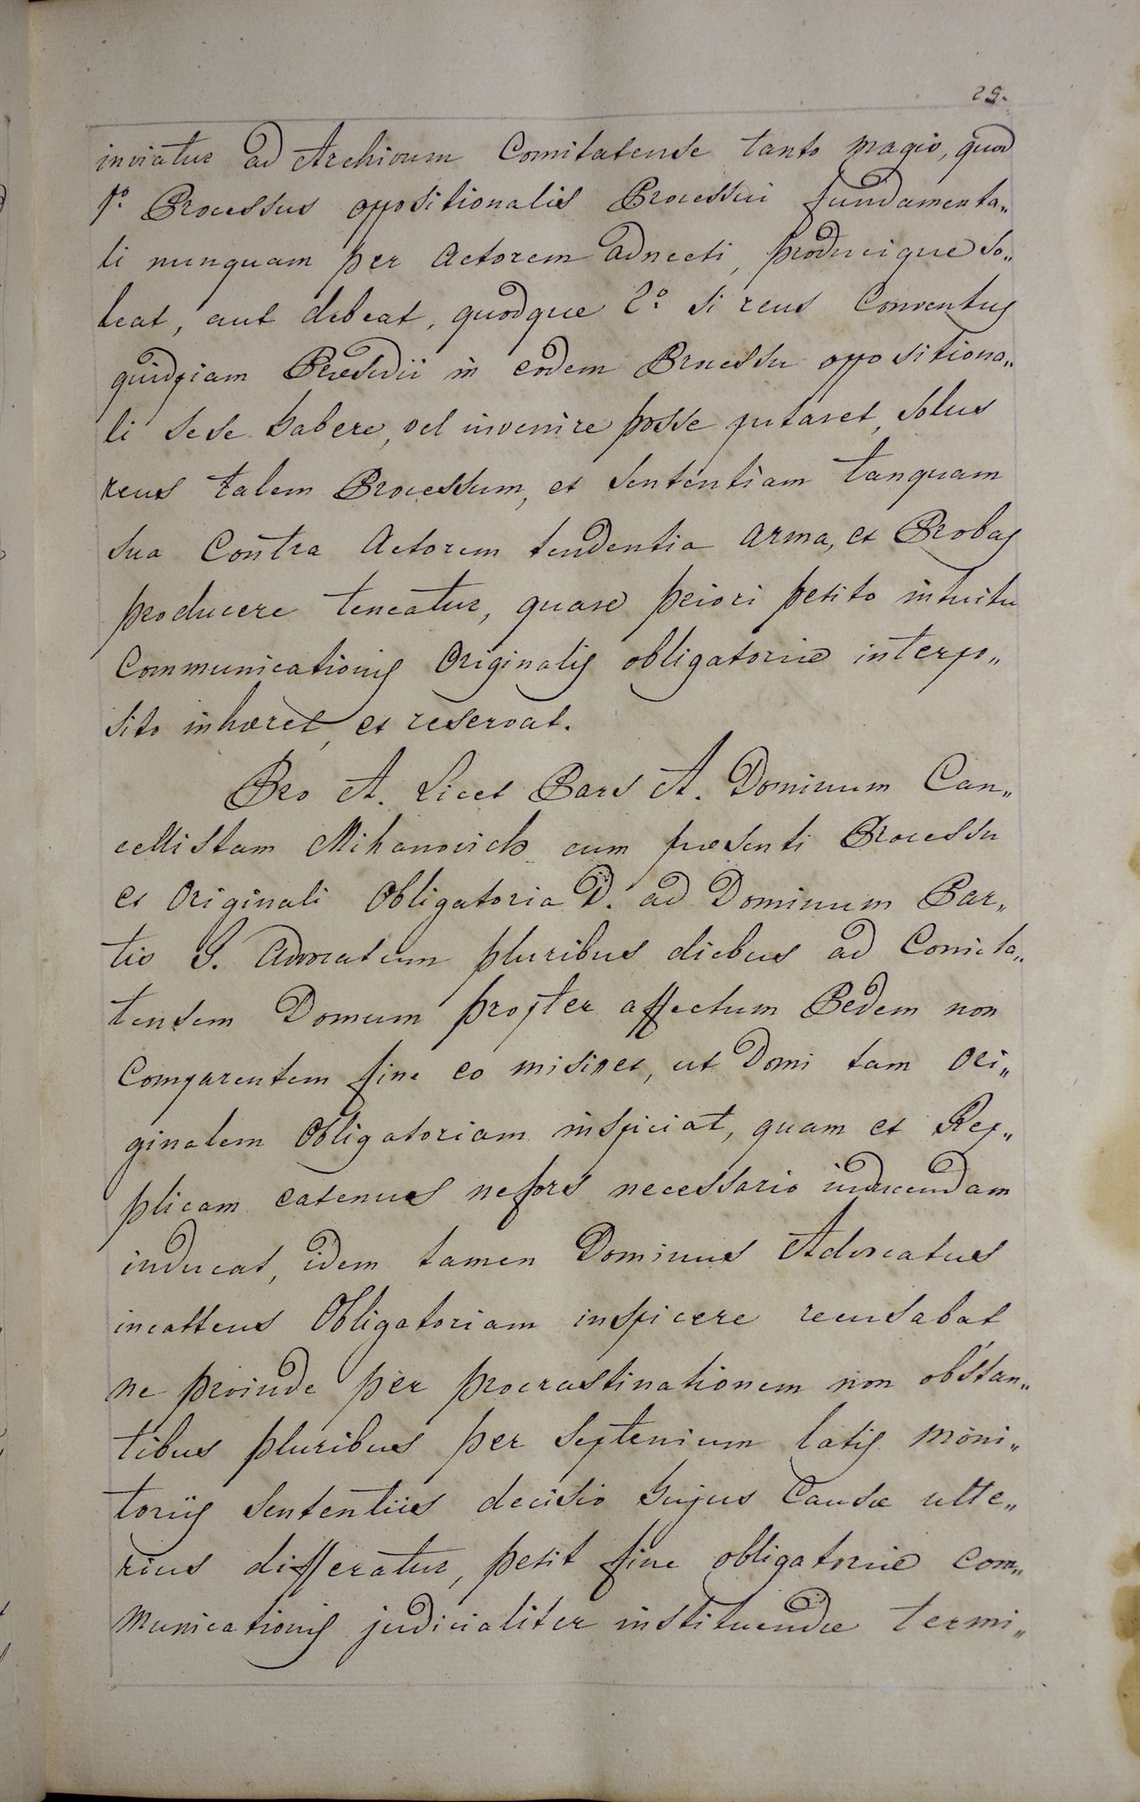 25.
inviatur ad Archivum Comitatense tanto magis, quod
1º Processus oppositionalis Processui fundamenta„
li nunquam per Actorem adnecti, producique so„
leat, aut debeat, quodque 2º si reus Conventus
quidpiam Præsidii in eodem Processu oppositiona„
li sese habere, vel invenire posse putaret, solus
reus talem Processum, et Sententiam tanquam
sua Contra Actorem tendentia arma, et Probas
producere teneatur, quare priori petito intuitu
Communicationis Originalis obligatoriæ interpo„
sito inhæret, et reservat.
Pro A. Licet Pars A. Dominum Can„
cellistam Mihanovich cum præsenti Processu
et Originali Obligatoria D. ad Dominum Par„
tis I. Advocatum pluribus diebus ad Comita„
tensem Domum propter affectum Pedem non
Comparentem fine eo misisset, ut Domi tam Ori„
ginalem Obligatoriam inspiciat, quam et Rep„
plicam eatenus nefors necessario inducendam
inducat, idem tamen Dominus Advocatus
incattus Obligatoriam inspicere recusabat
ne proinde per procrastinationem non obstan„
tibus pluribus per Septenium latis moni„
toriis Sententiis decisio hujus Causæ ulte„
rius differatur, petit fine obligatoriæ com„
municationis judicialiter instituendæ termi„